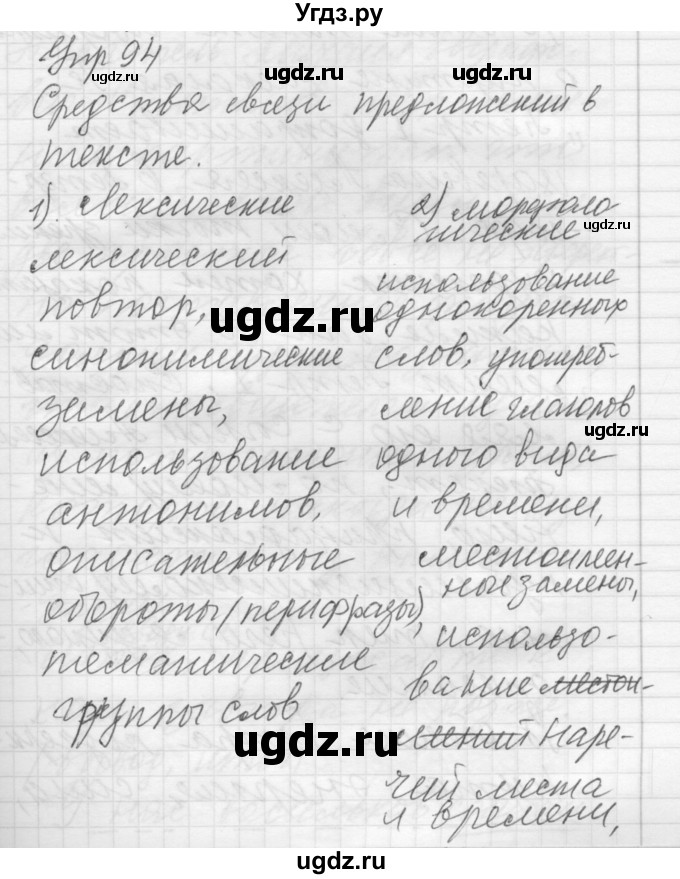 Угдз.ру
Упр 94
ugdz.ru ugdz.ru ugdz.ru
Средства связи предложений в
тексте.
1). Лексические
лексический
повтор,
синонимические
замены,
использование
антонимов,
описательные
обороты (перифразы),
тематические
группы слов
2) морфоло
гические
ugdz.ru
использование
однокоренных
слов, употреб-
ление глаголов
одного вида
и времени,
местоимен-
ные замены,
использо-
вание местои-
мений наре-
чий места
и времени,
ugdz.ru
ugdz.ru
ugdz.ru
ugdz.ru
ugdz.ru